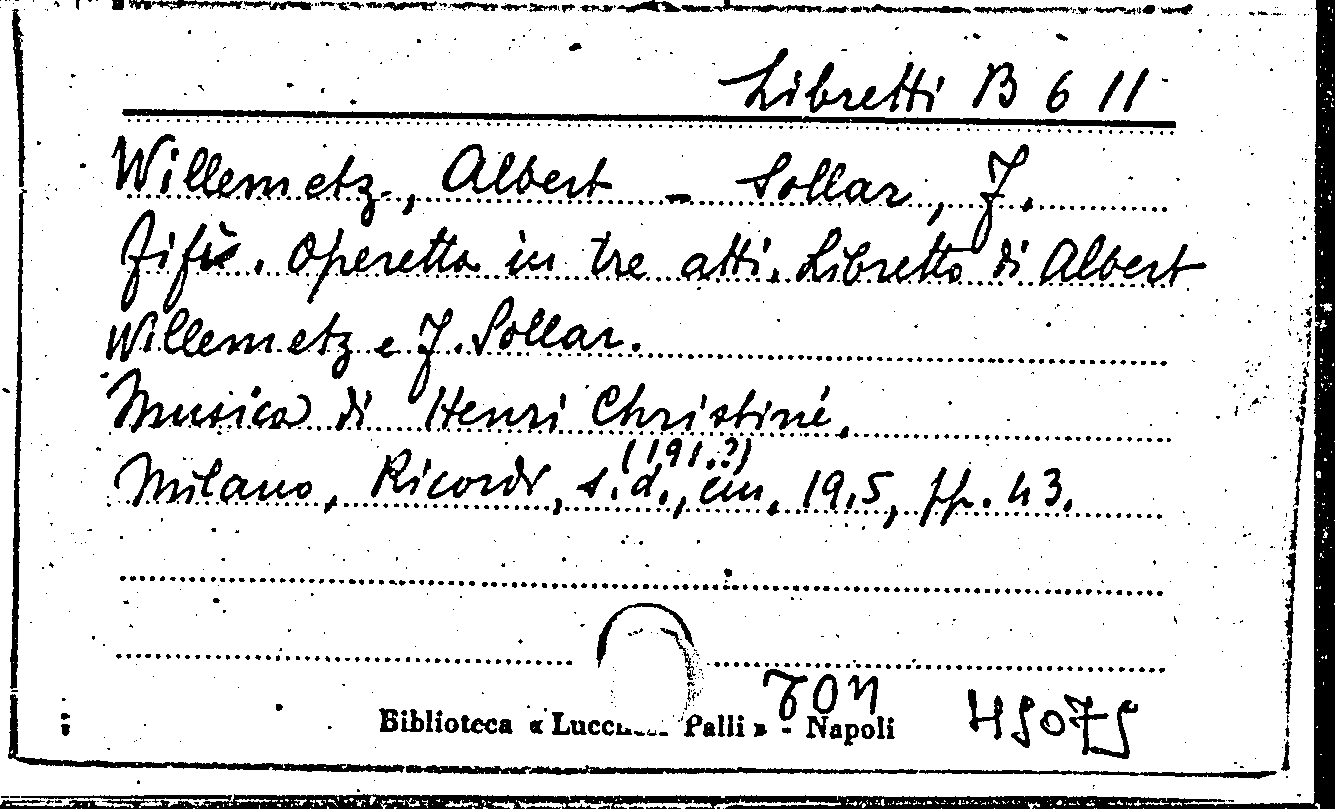 Libretti B 6 11
Willemetz, Albert - Sollar, J.
Fifì. Operetta in tre atti. Libretto di Albert
Willemetz e J. Sollar.
Musica di Henri Christiné,
(191.?)
Milano, Ricordi, s.d., cm. 19,5, pp. 43.
Biblioteca « Palli » - Napoli
49075